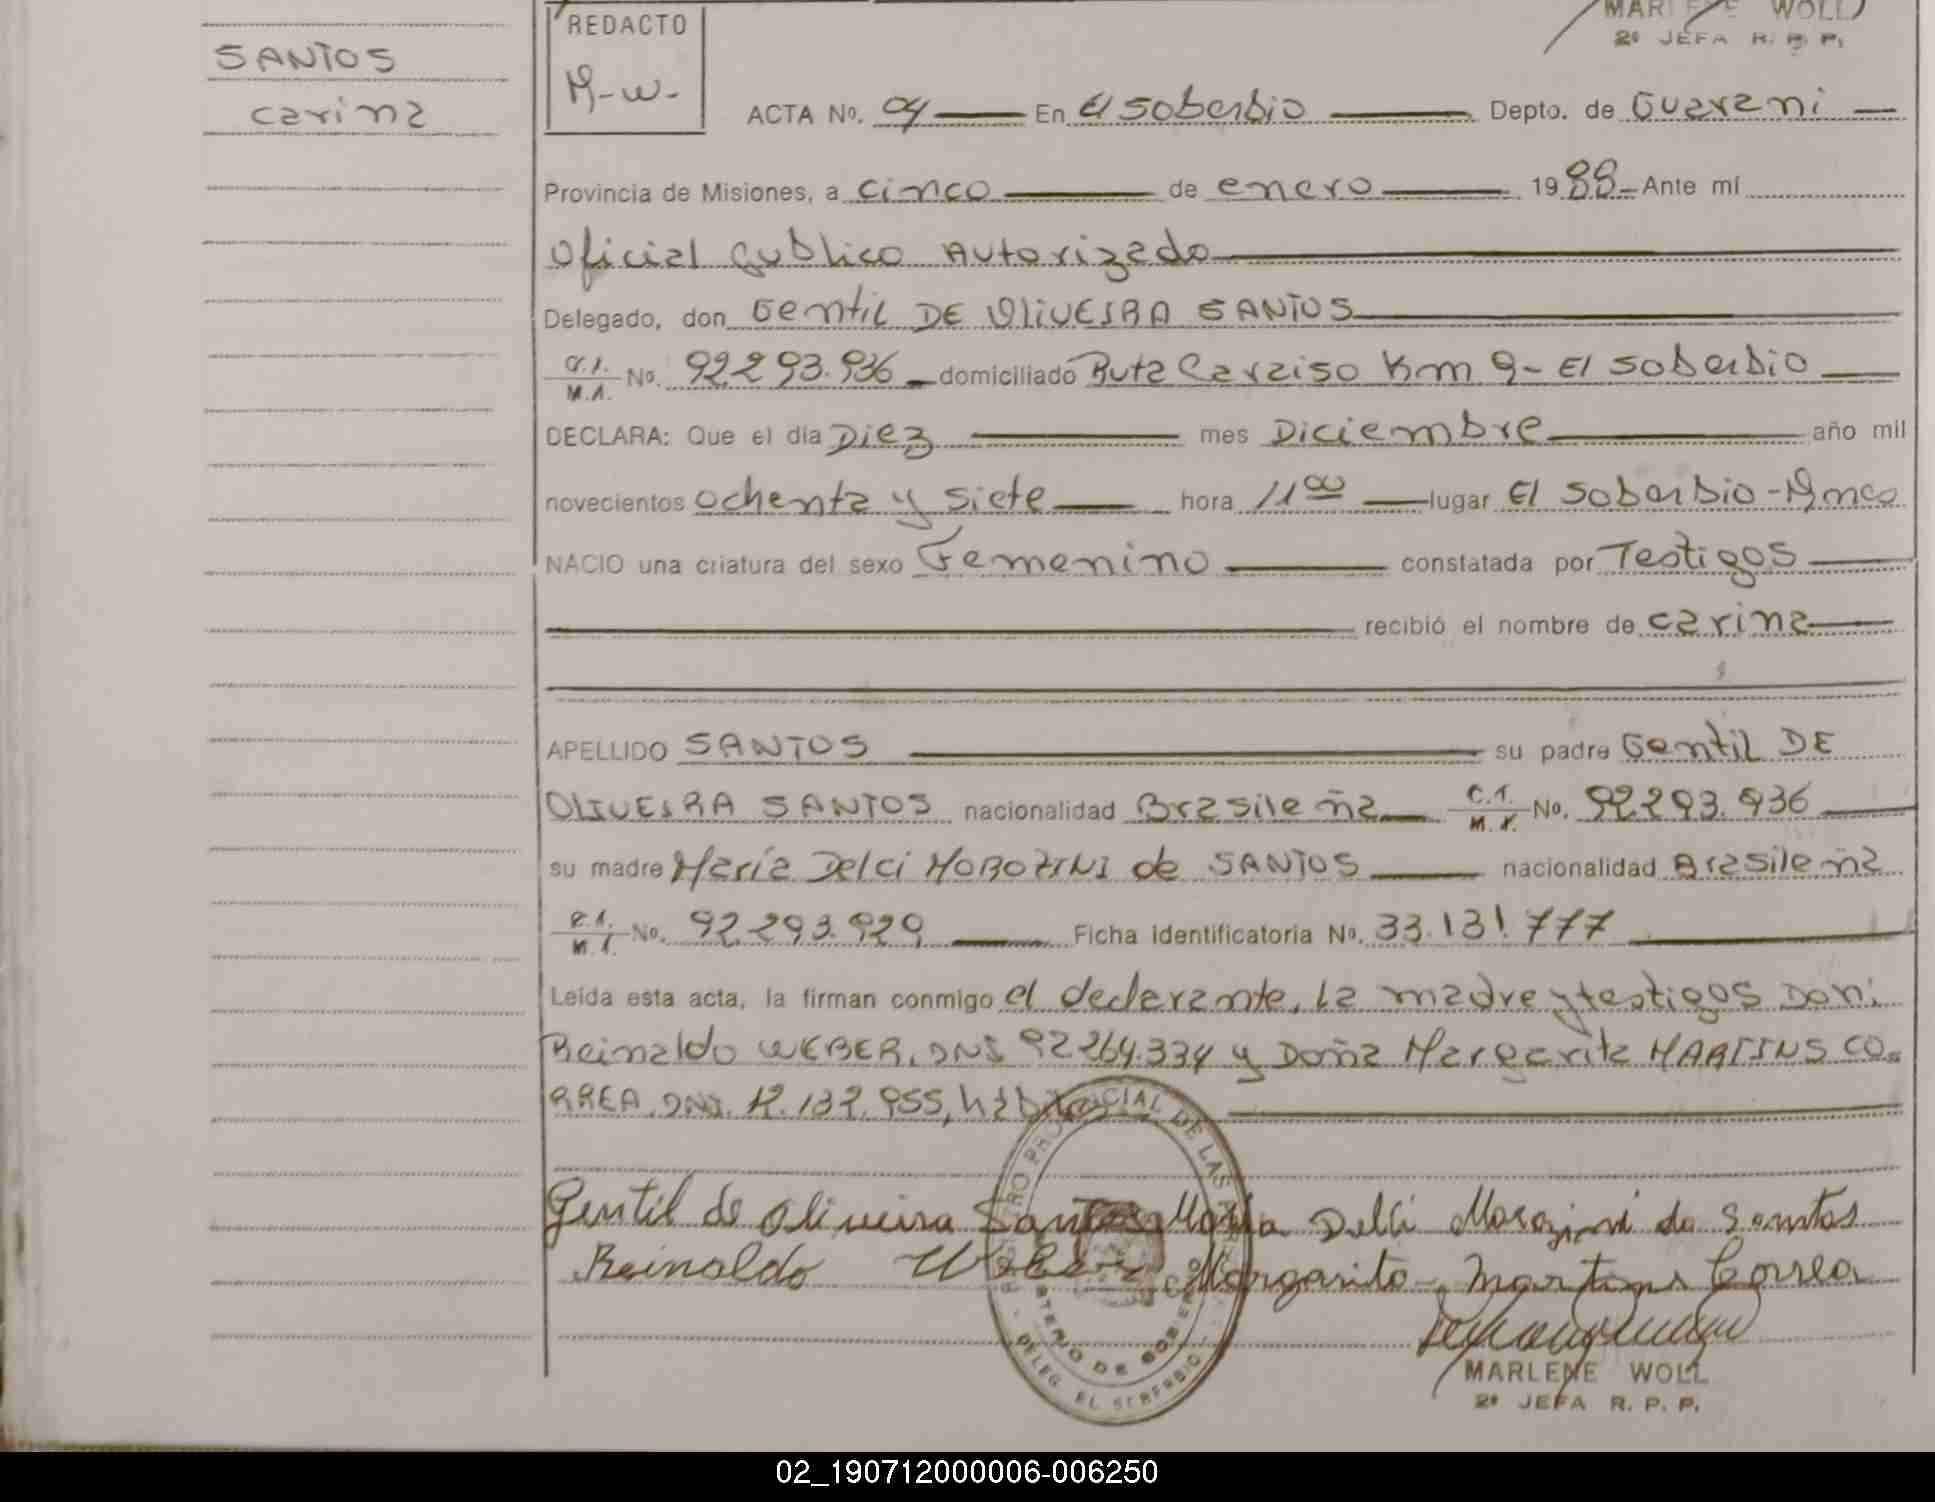 MARLENE WOLL
2º JEFA R. P. P.
SANTOS
Carina
REDACTO
M-W-
ACTA No. 04 En El Soberbio Depto. de Guarani
Provincia de Misiones, a cinco de enero 1988 Ante mí
Oficial Publico Autorizado
Delegado, don Gentil DE OLIVEIRA SANTOS
C.I. M.I. No. 92.293.936 domiciliado Ruta Paraiso Km 9- El Soberbio
DECLARA: Que el día Diez mes Diciembre año mil
novecientos ochenta y siete hora 11 00 lugar El Soberbio-Mnes
NACIO una criatura del sexo Femenino constatada por Testigos
recibió el nombre de Carina
APELLIDO SANTOS su padre Gentil DE
OLIVEIRA SANTOS nacionalidad Brasileña C.I. M.I. No. 92.293.936
su madre María Delci MOROZINI de SANTOS nacionalidad Brasileña
C.I. M.I. No. 92.293.929 Ficha identificatoria No. 33.131.777
Leída esta acta, la firman conmigo el declarante, la madre y testigos Don:
Reinaldo WEBER, DNI 92 264.334 y Doña Margarita MARTINS CO-
RREA. DNI. 12.137.955, hábiles
REGISTRO PROVINCIAL DE LAS
MINISTERIO DE GOBIERNO
DELEG. EL SOBERBIO
Gentil de Oliveira Santos Maria Delci Morozini de Santos
Reinaldo Weber Margarita Martins Correa
MARLENE WOLL
2º JEFA R. P. P.
02_190712000006-006250